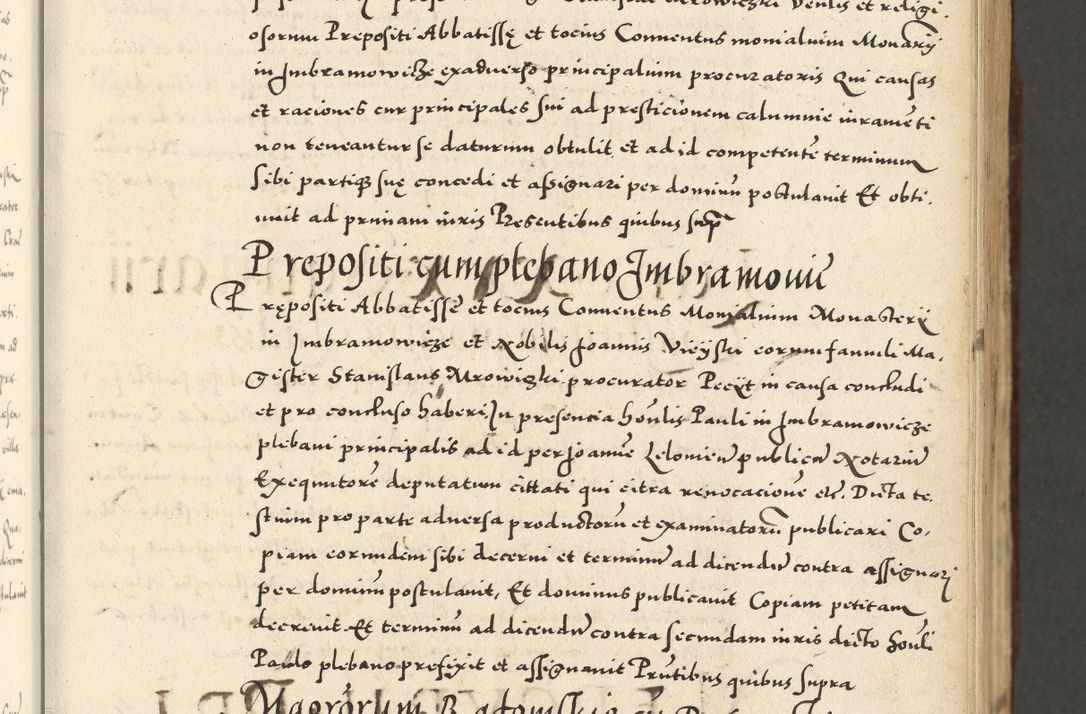 osorum Prepositi Abbatissę et tocius Conuentus monialium Monarij
in Imbramowicze exaduerso principalium procuratoris Qui causas
et raciones cur principales sui ad presticionem calumnie iuramēti
non teneantur se daturum obtulit et ad id competentē terminum
Sibi partiq3 suę concedi et assignari per dominū postulauit Et obti,
nuit ad primam iuris Presentibus quibus sup
Prepositi cum plebano Imbramouie
Prępositi Abbatisse et tocius Conuentus Monialium Monasterij
in Imbramowicze et Nobilis Joannis Vieyski eorum famuli Ma,
gister Stanislaus Mrowiczki procurator Pecijt in causa concludi
et pro concluso haberi In presencia honlis Pauli in Imbramowicze
plebani principalis ad id per Joannē Lelomiew publicū Notariū
Exequutorē deputatum cittati qui citra reuocacionē etc. Dicta te,
stium pro parte aduersa productorū et examinatorū publicari Co,
piam eorundem sibi decerni et terminū ad dicendū contra assignari
per dominū postulauit, Et dominus publicauit Copiam petitam
decreuit Et terminū ad dicendū contra secundam iuris dicto honli
Paulo plebano prefixit et assignauit Prntibus quibus supra